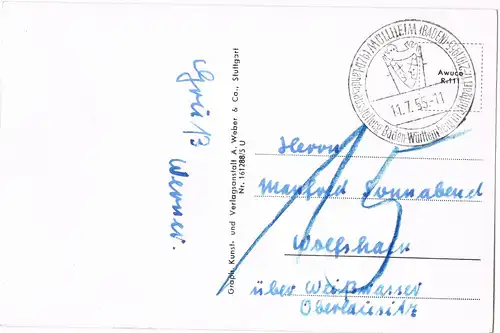 Gruß
Werner.
Graph. Kunst- und Verlagsanstalt A. Weber & Co., Stuttgart
Nr. 161288/5 U
MÜLLHEIM (BADEN)
11.7.55-11
Baden-Württemberg
Awuco
R 111
15
Herrn
Manfred Sonnabend
Wolfshain
über Weißwasser
Oberlausitz